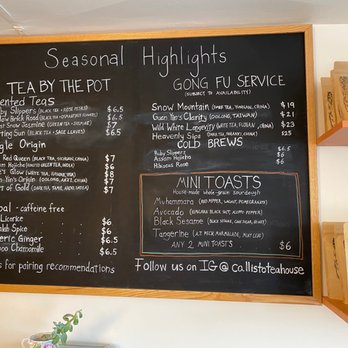 Seasonal Highlights
TEA BY THE POT
Scented Teas
Slippers (BLACK TEA + ROSE PETALS) $6.5
Brick Road $6.5
Jasmine (GREEN TEA + JASMINE) $7
ring Sun (BLACK TEA + SAGE LEAVES) $6.5
gle Origin
Red Queen (BLACK TEA, SICHUAN, CHINA) $7
$6
Glow (WHITE TEA, CHINA) $8
Origin (OOLONG, CHINA) $7
of Gold $8
bal - caffeine free
Licorice $6
Spice $6
eric Ginger $6.5
co Chamomile $6.5
s for pairing recommendations
GONG FU SERVICE
(SUBJECT TO AVAILABILITY)
Snow Mountain (TEA, YUNNAN, CHINA) $19
Guan Yin's Clarity (OOLONG, TAIWAN) $21
Wild White Longevity (WHITE TEA, FUDIAN, CHINA) $23
Heavenly Sips (CHINA) $25
COLD BREWS
Ruby Slippers $6.5
Assam $6
Hibiscus Rose $6
MINI TOASTS
House-made whole-grain sourdough
Muhammara (RED PEPPER, WALNUT, POMEGRANATE)
Avocado (BLACK SALT, ALEPPO PEPPER)
Black Sesame
Tangerine (MARMALADE, MINT LEAF)
ANY 2 MINI TOASTS $6
Follow us on IG @ callistoteahouse